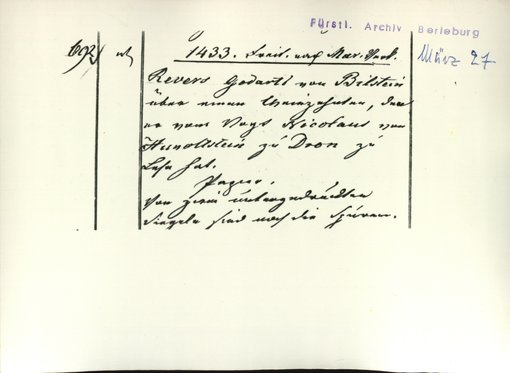 Fürstl. Archiv Berleburg
März 27
1433. Freit. nach Mar. Verk.
Revers Godartl von Bilstein
über einen Weinzehnten, den
er vom Vogt Nicolaus von
Hunoltstein zu Dron zu
Lehn hat.
Papier.
Von zwei untergedruckten
Siegeln sind noch die Spuren.